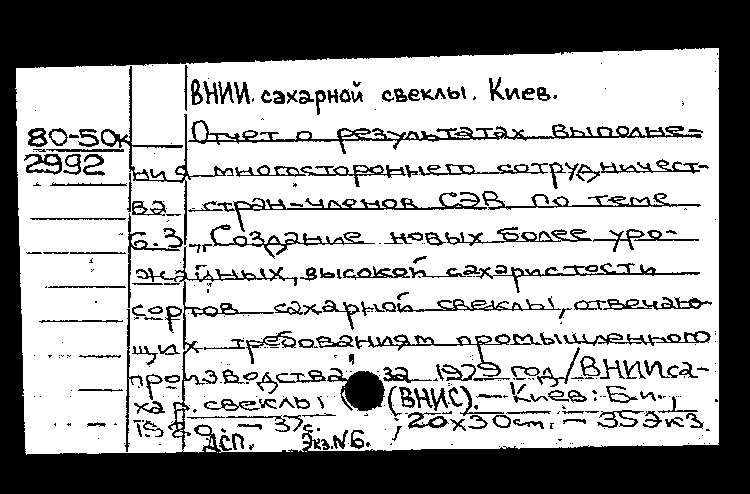 ВНИИ. сахарной свеклы. Киев.
80-50к
Отчет о результатах выполне=
2992
ния многостороннего сотрудничест-
ва стран-членов СЭВ по теме
6.3 „Создание новых более уро-
жайных, высокой сахаристости
сортов сахарной свеклы, отвечаю-
щих требованиям промышленного
производства" за 1979 год/ВНИИса-
хар. свеклы (ВНИС). — Киев: Б.и.,
1980. — 37с. ; 20х30см. — 35экз.
ДСП. Экз.№6.